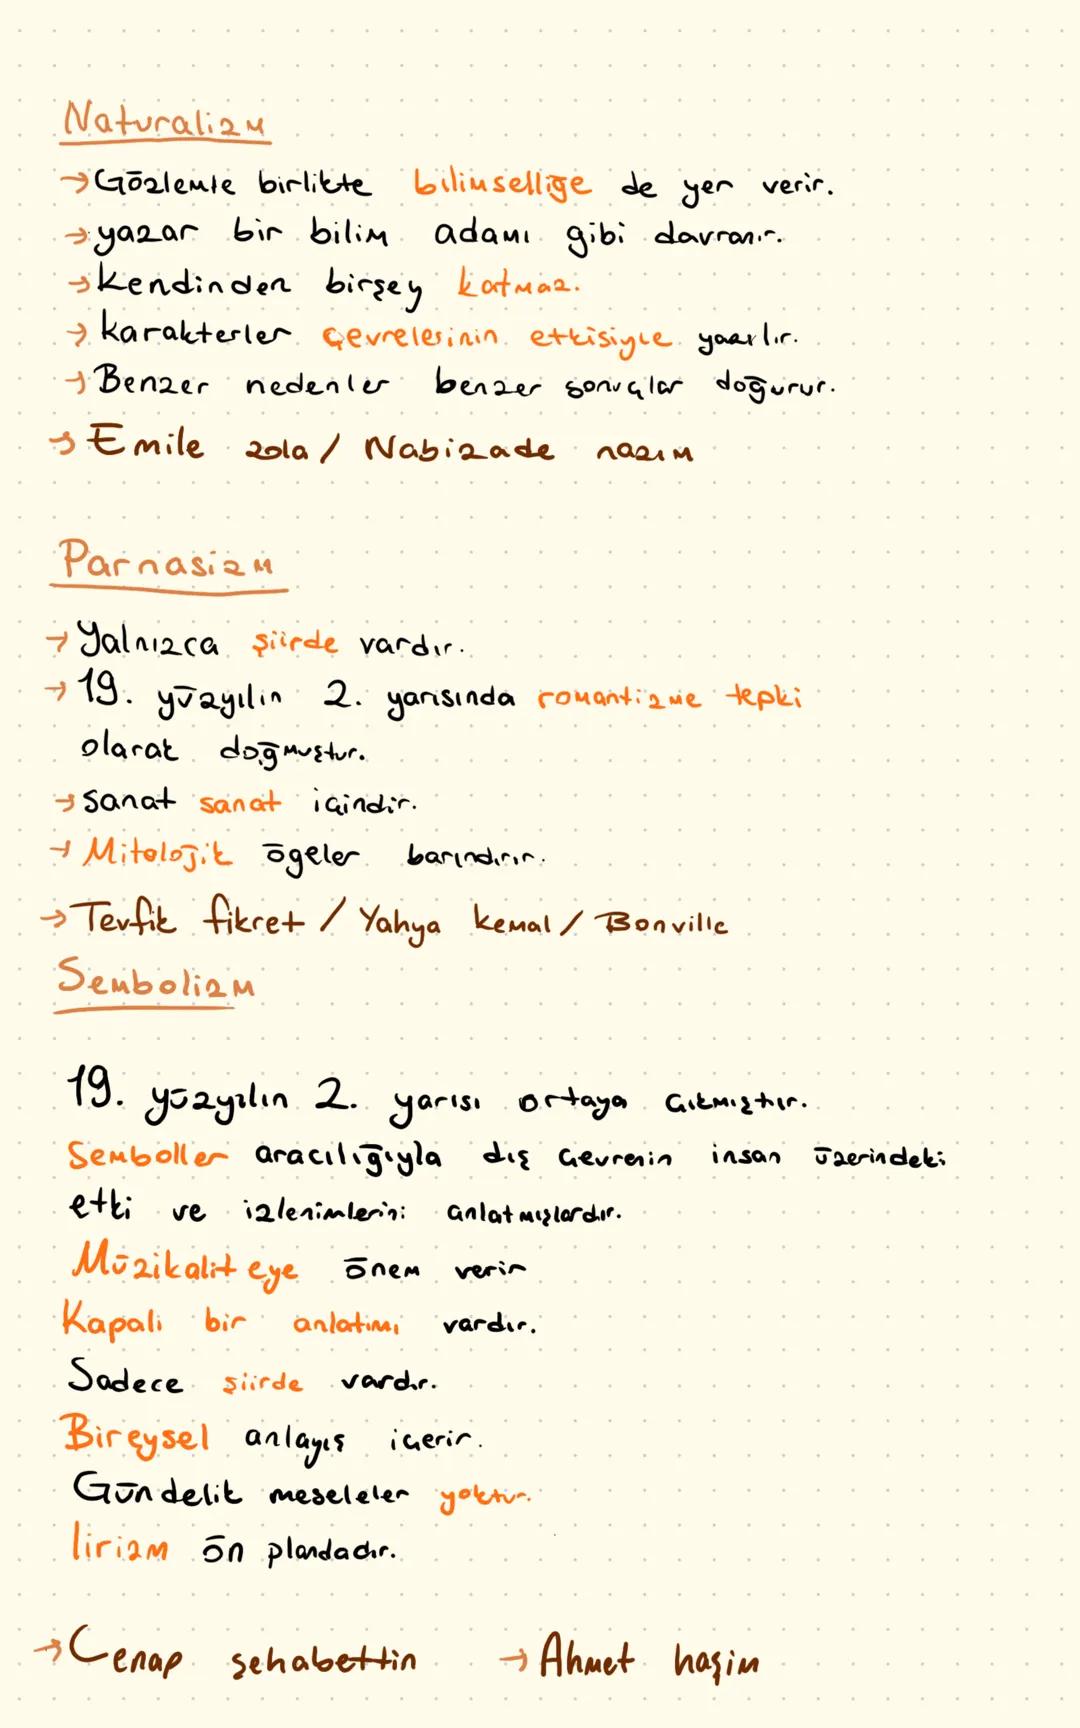 Naturalizm
→ Gözlemle birlikte bilimselliğe de yer verir.
→ yazar bir bilim adamı gibi davranır.
→ kendinden birşey katmaz.
→ karakterler çevrelerinin etkisiyle yazılır.
→ Benzer nedenler benzer sonuçlar doğurur.
→ Emile zola / Nabizade nazım
Parnasizm
→ Yalnızca şiirde vardır.
→ 19. yüzyılın 2. yarısında romantizme tepki
olarak doğmuştur.
→ sanat sanat içindir.
→ Mitolojik ögeler barındırır.
→ Tevfik fikret / Yahya kemal / Bonville
Sembolizm
19. yüzyılın 2. yarısı ortaya çıkmıştır.
Semboller aracılığıyla dış çevrenin insan üzerindeki
etki ve izlenimlerini anlatmışlardır.
Müzikaliteye önem verir
Kapalı bir anlatımı vardır.
Sadece şiirde vardır.
Bireysel anlayış içerir.
Gündelik meseleler yoktur.
lirizm ön plandadır.
→ Cenap sehabettin → Ahmet haşim